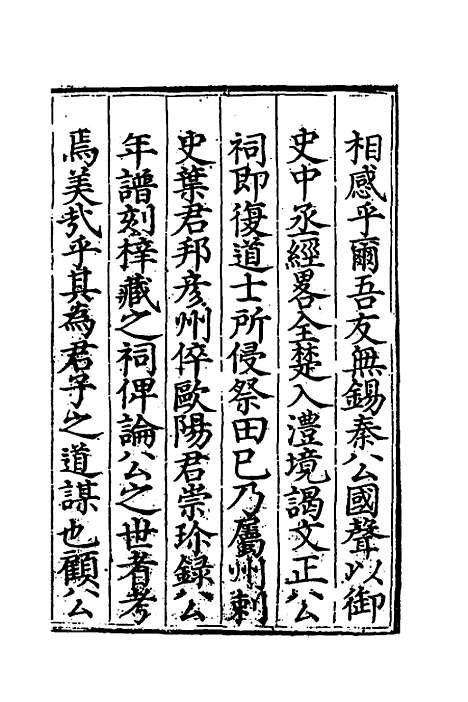 相感乎爾吾友無錫秦公國聲以御
史中丞經畧全楚入澧境謁文正公
祠即復道士所侵祭田已乃屬州刺
史葉君邦彦州倅歐陽君崇珍録公
年譜刻梓藏之祠俾論公之世者考
焉美㢤乎其為君子之道謀也顧公